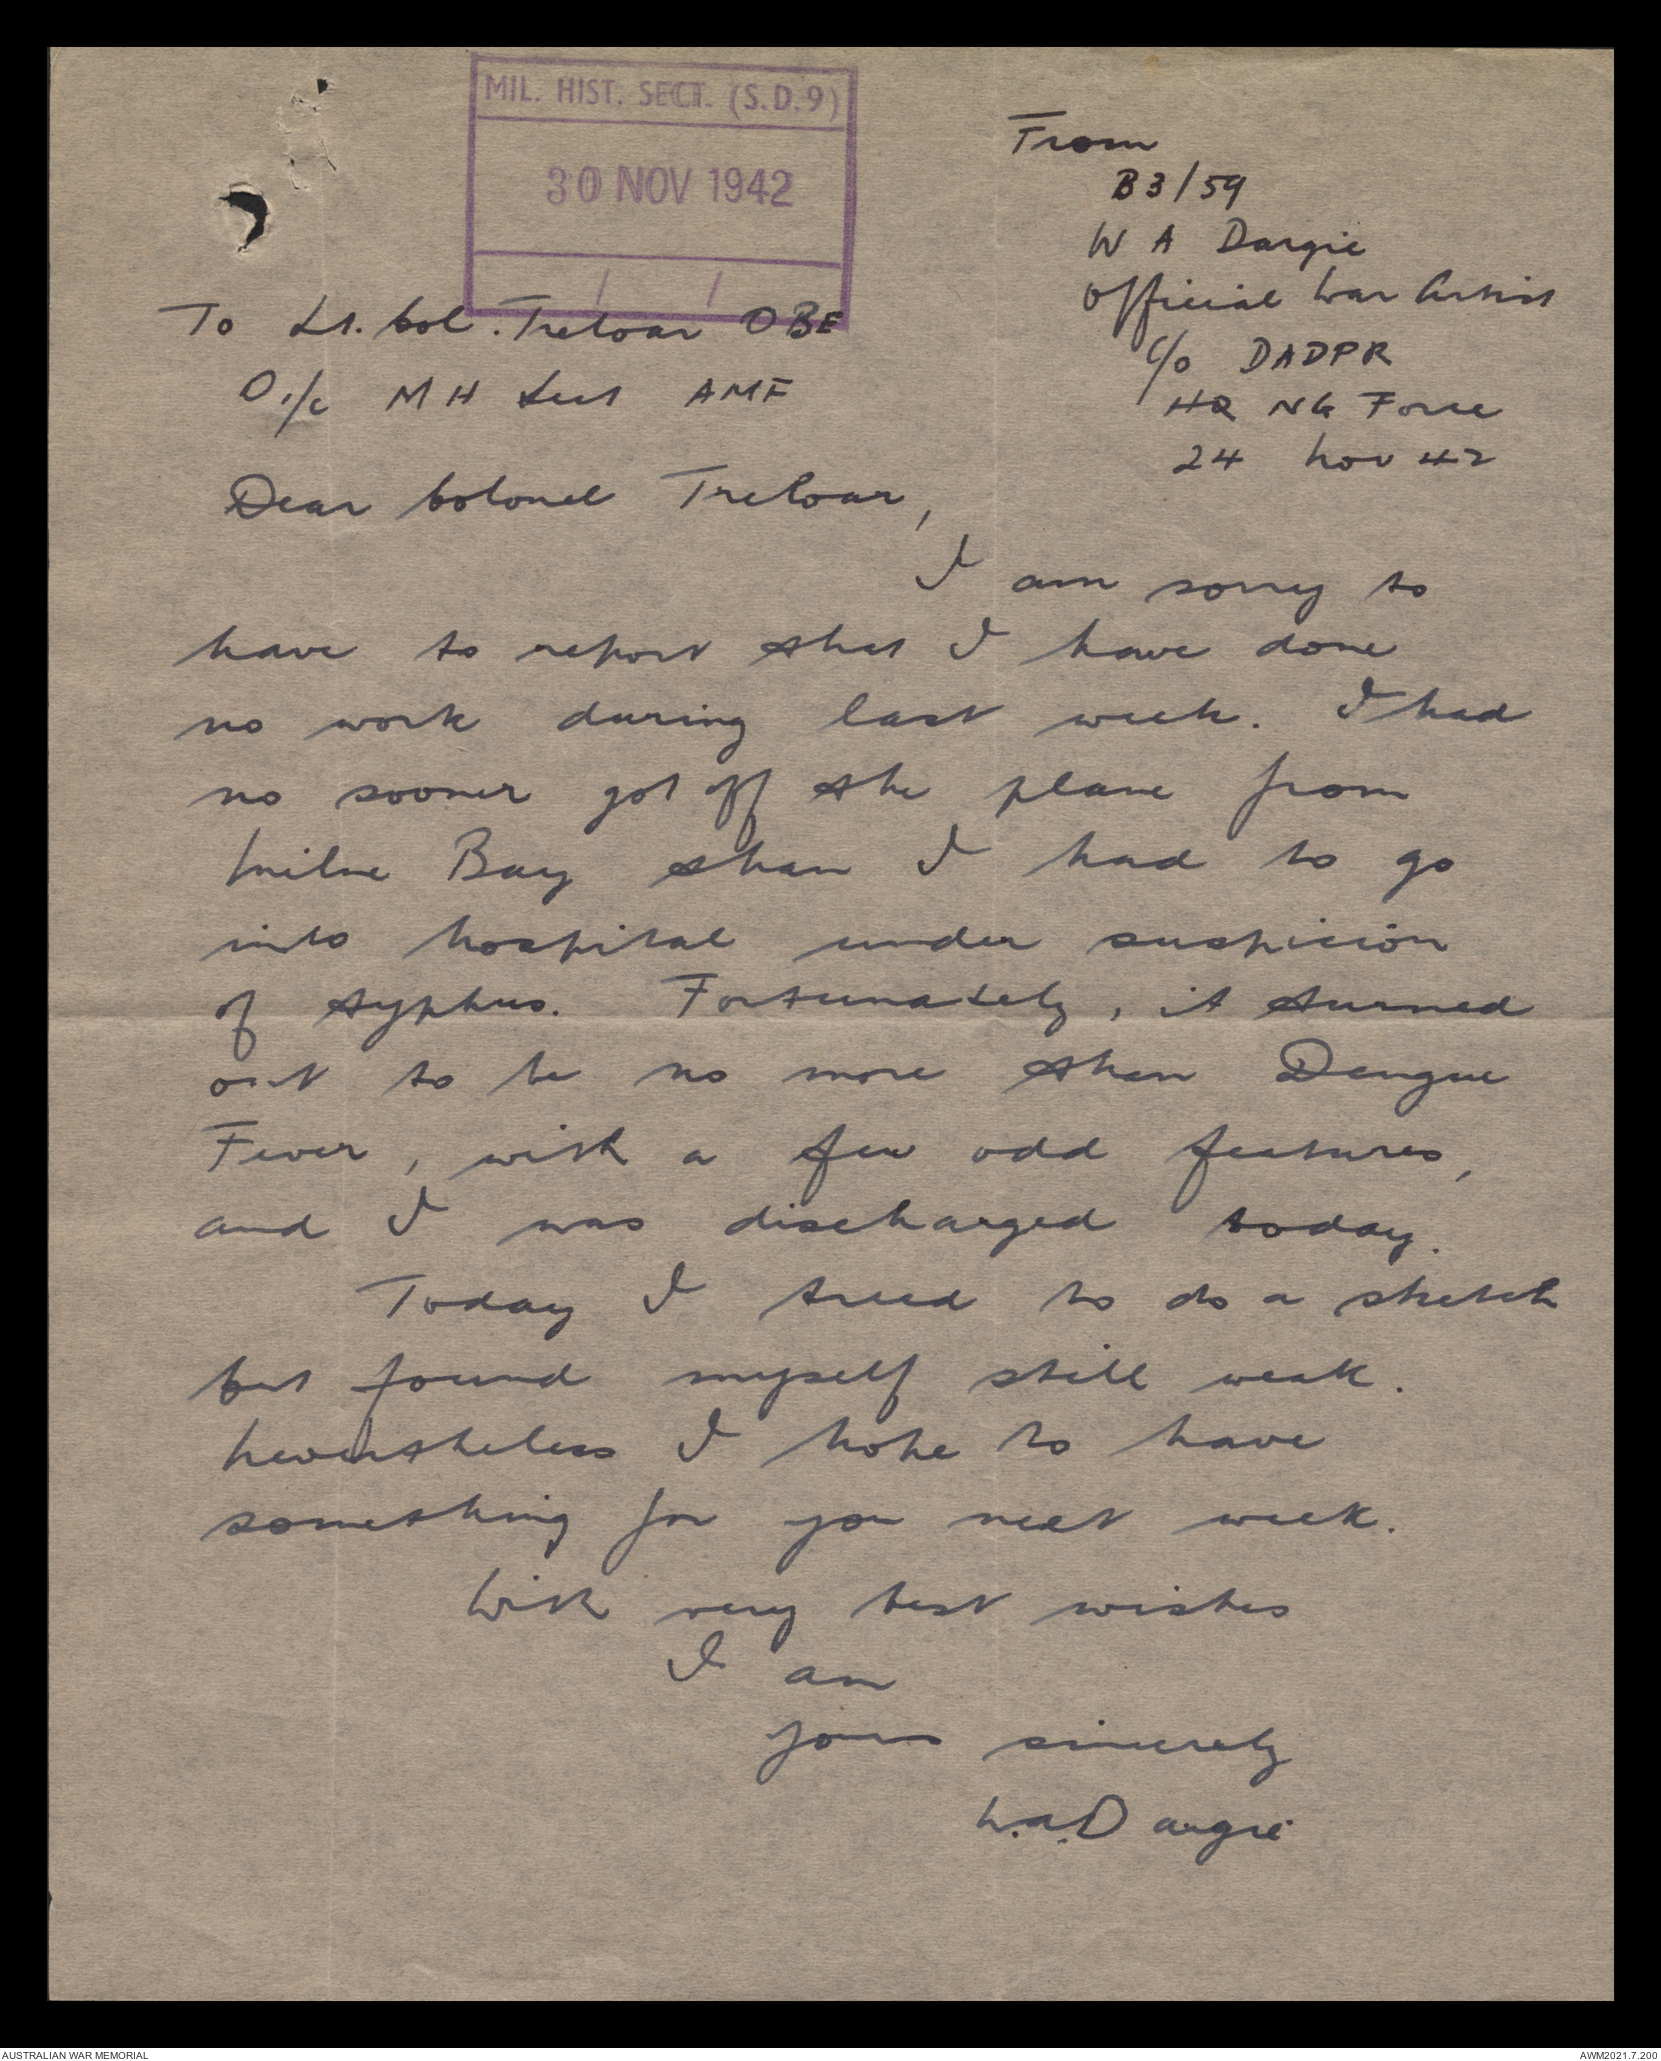 MIL. HIST. SECT. (S.D.9)
30 NOV 1942
/ /
From
B3/59
W A Dargie
Official War Artist
C/o DADPR
HQ NG Force
24 Nov 42
To Lt. Col. Treloar OBE
O i/c MH Sect AMF
Dear Colonel Treloar,
I am sorry to
have to report that I have done
no work during last week. I had
no sooner got off the plane from
Milne Bay than I had to go
into hospital under suspicion
of typhus. Fortunately, it turned
out to be no more than Dengue
Fever, with a few odd features,
and I was discharged today.
Today I tried to do a sketch
but found myself still weak.
Nevertheless I hope to have
something for you next week.
With very best wishes
I am
yours sincerely
W.A. Dargie
AUSTRALIAN WAR MEMORIAL
AWM2021.7.200